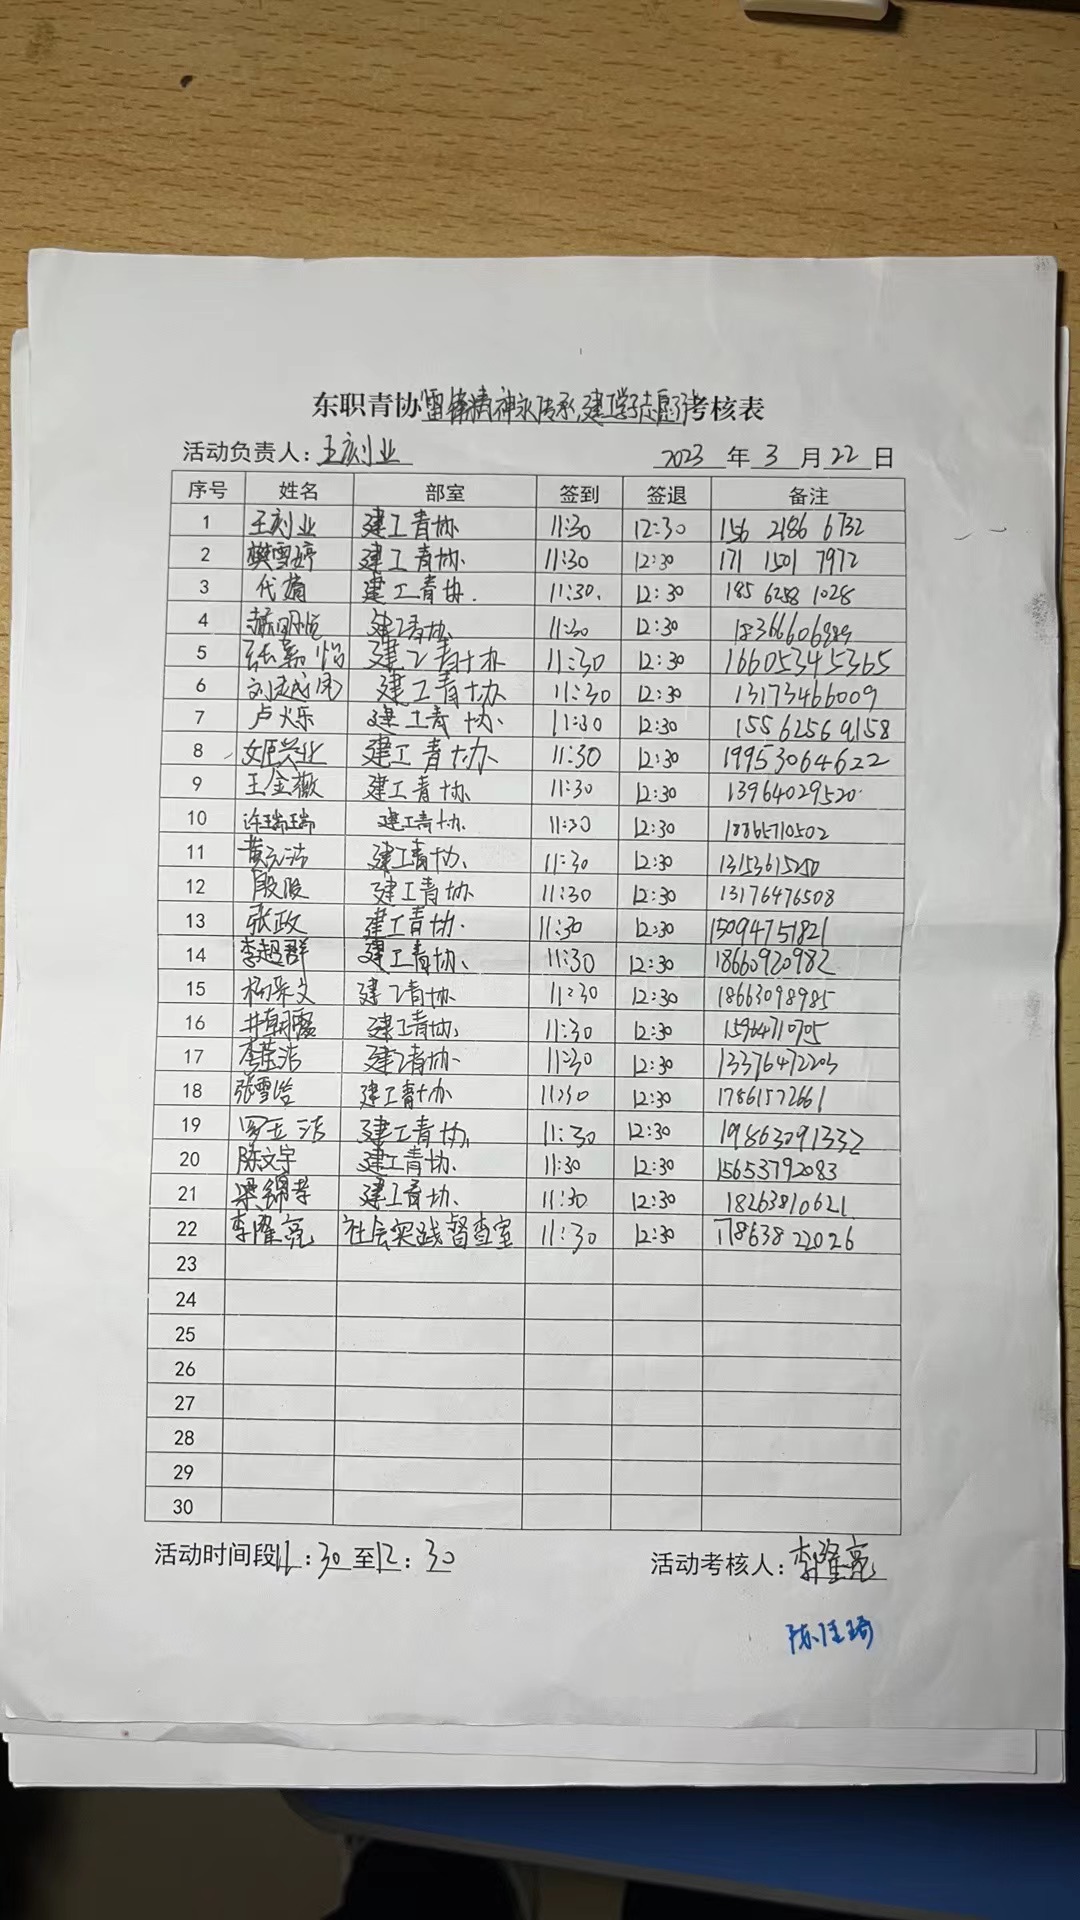 东职青协雷锋精神永传承,建工学子志愿行考核表
活动负责人:王刻业 2023 年 3 月 22 日
序号 姓名 部室 签到 签退 备注
1 王刻业 建工青协 11:30 12:30 156 2186 6732
2 樊雪婷 建工青协. 11:30 12:30 171 1501 7972
3 代 建工青协. 11:30. 12:30 185 6258 1028
4 建工青协. 11:30 12:30
5 张嘉怡 建工青协 11:30 12:30 16605345365
6 刘 建工青协 11:30 12:30 13173466009
7 卢火乐 建工青协. 11:30 12:30 15562569158
8 姬兴业 建工青协 11:30 12:30 19953064622
9 王金薇 建工青协. 11:30 12:30 13964029520
10 许瑞瑞 建工青协. 11:30 12:30 18865710502
11 黄 建工青协. 11:30 12:30 13153615250
12 殷 建工青协 11:30 12:30 13176476508
13 张政 建工青协. 11:30 12:30 15094751821
14 李超群 建工青协. 11:30 12:30 18660920982
15 杨采文 建工青协 11:30 12:30 18663098985
16 井朝露 建工青协. 11:30 12:30 15964710705
17 李 洁 建工青协. 11:30 12:30 13376472203
18 张雪 建工青协 11:30 12:30 17861572661
19 罗 洁 建工青协. 11:30 12:30 19863091332
20 陈文宇 建工青协. 11:30 12:30 15653792083
21 梁锦孝 建工青协. 11:30 12:30 18263810621
22 李耀亮 社会实践督查室 11:30 12:30 17863822026
23
24
25
26
27
28
29
30
活动时间段11:30至12:30 活动考核人:李耀亮
陈佳琦